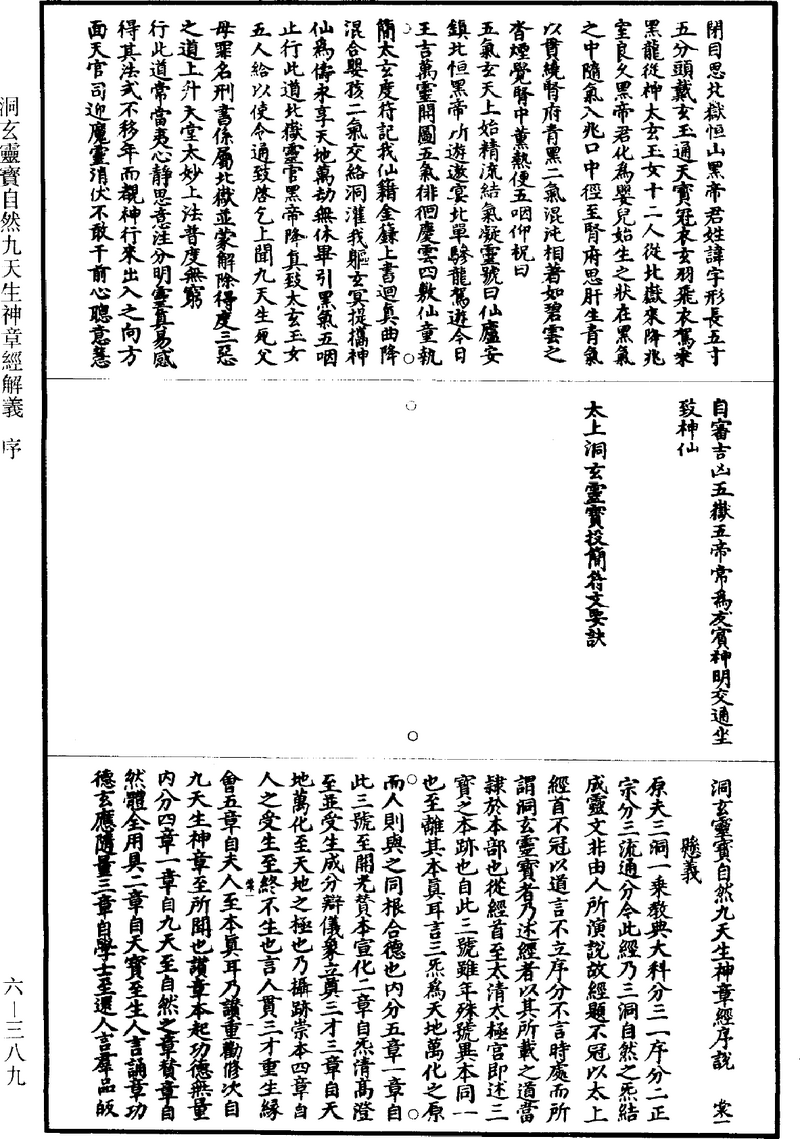 閉目思北嶽恒山黑帝君姓諱字形長五寸
五分頭戴玄玉通天寶冠衣玄羽飛衣駕乘
黑龍從神太玄玉女十二人從北嶽來降兆
室良久黑帝君化為嬰兒始生之狀在黑氣
之中隨氣入兆口中徑至腎府思肝生青氣
以貫繞腎府青黑二氣混沌相著如碧雲之
沓煙覺腎中薰熱便五咽仰祝曰
五氣玄天上始精流結氣凝靈號曰仙廬安
鎮北恒黑帝所遊遨宴北單驂龍駕遊今日
王言萬靈開圖五氣徘徊慶雲四敷仙童執
簡太玄度符記我仙籍金籙上書迴真曲降
混合嬰孩二氣交絡洞灌我軀玄冥提攜神
仙為儔永享天地萬劫無休畢引黑氣五咽
止行此道北嶽靈官黑帝降真致太玄玉女
五人給以使令通致啓乞上聞九天生死父
母罪名刑書係屬北嶽並蒙解除得度三惡
之道上升天堂太妙上法普度無窮
行此道常當夷心靜思意注分明靈真易感
得其法式不移年而覩神行來出入之向方
面天官司迎魔靈消伏不敢干前心聰意慧
自審吉凶五嶽五帝常為友賓神明交通坐
致神仙
太上洞玄靈寶投簡符文要訣
洞玄靈寶自然九天生神章經序說 裳一
懸義
原夫三洞一乘教典大科分三一序分二正
宗分三流通分今此經乃三洞自然之炁結
成靈文非由人所演說故經題不冠以太上
經首不冠以道言不立序分不言時處而所
謂洞玄靈寶者乃述經者以其所載之道當
隸於本部也從經首至太清太極宮即述三
寶之本跡也自此三號雖年殊號異本同一
也至離其本真耳言三炁為天地萬化之原
而人則與之同根合德也內分五章一章自
此三號至開光贊本宣化二章自炁清高澄
至並受生成分辯儀象立奠三才三章自天
地萬化至天地之極也乃攝跡崇本四章自
人之受生至終不生也言人貫三才重生緣
會五章自夫人至本真耳乃讚重勸修次自
九天生神章至所聞也讚章本起功德無量
內分四章一章自九天至自然之章贊章自
然體全用具二章自天寶至生人言誦章功
德玄應隨量三章自學士至還人言羣品皈
洞玄靈寶自然九天生神章經解義 序
六—三八九